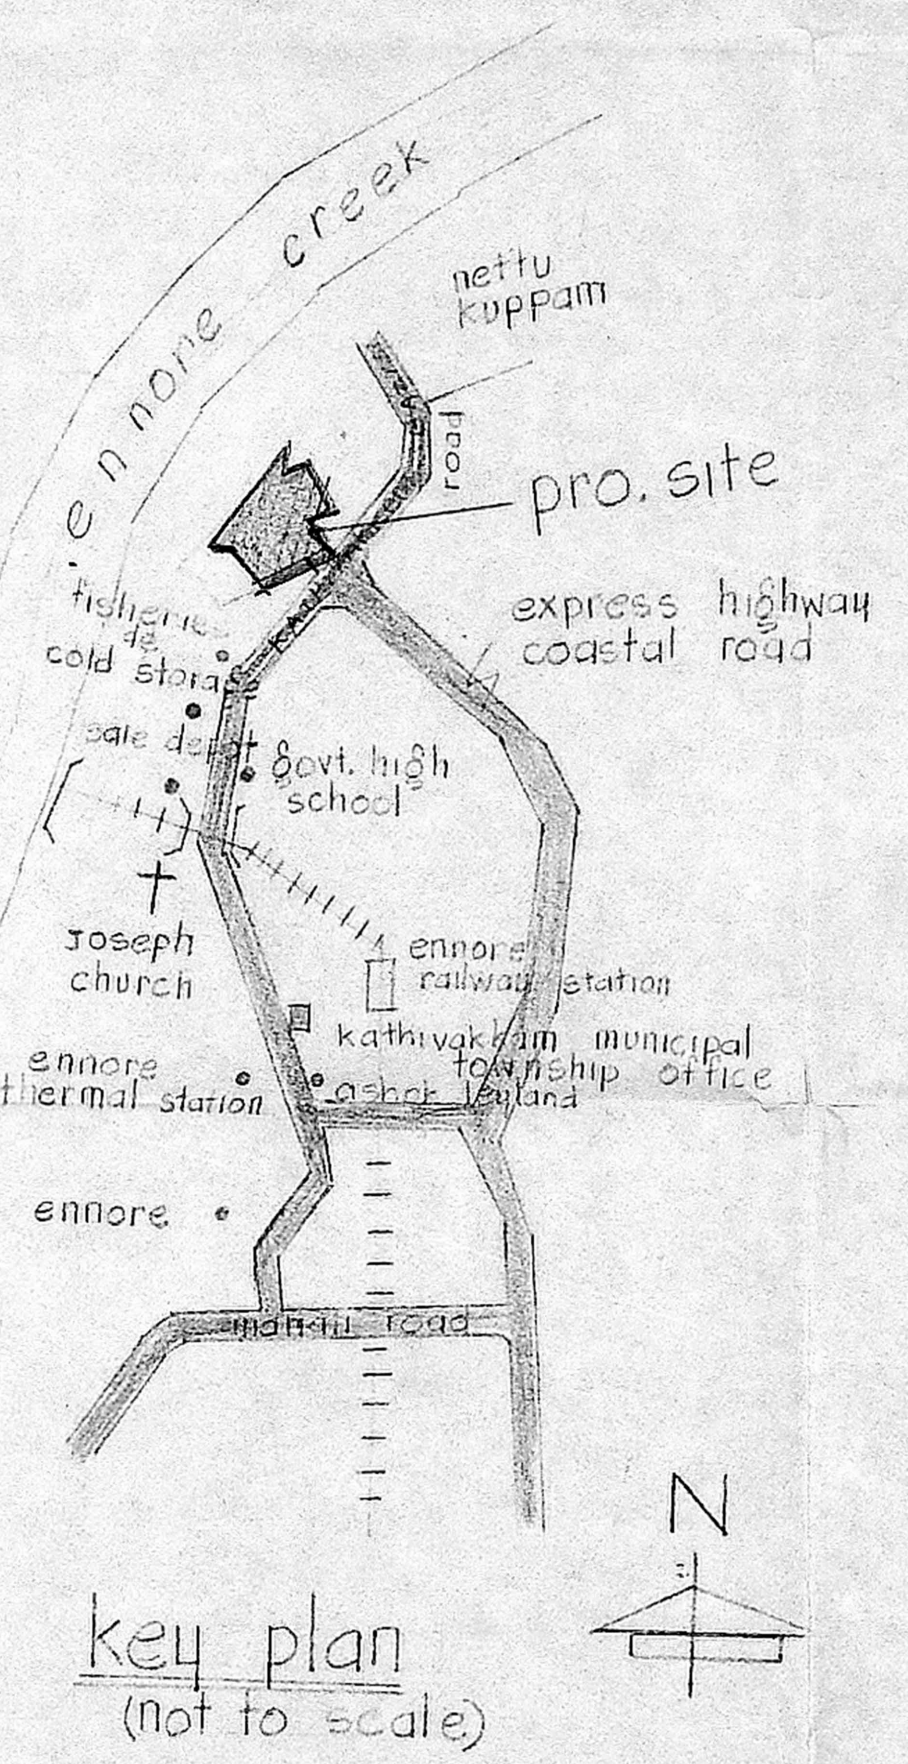 ennore creek
nettu
kuppam
road
pro. site
express highway
coastal road
fisheries
de
cold storage
sale depot
govt. high
school
Joseph
church
ennore
railway station
kathivakkam municipal
township office
ennore
thermal station
ashok leyland
ennore
manali road
N
key plan
(not to scale)